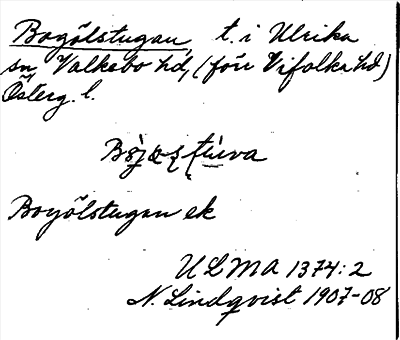 Bogölstugan, t. i Ulrika
sn, Valkebo hd, (förr Vifolka hd)
Österg. l.
Bogölstugan ek
ULMA 1374:2
N. Lindqvist 1907-08